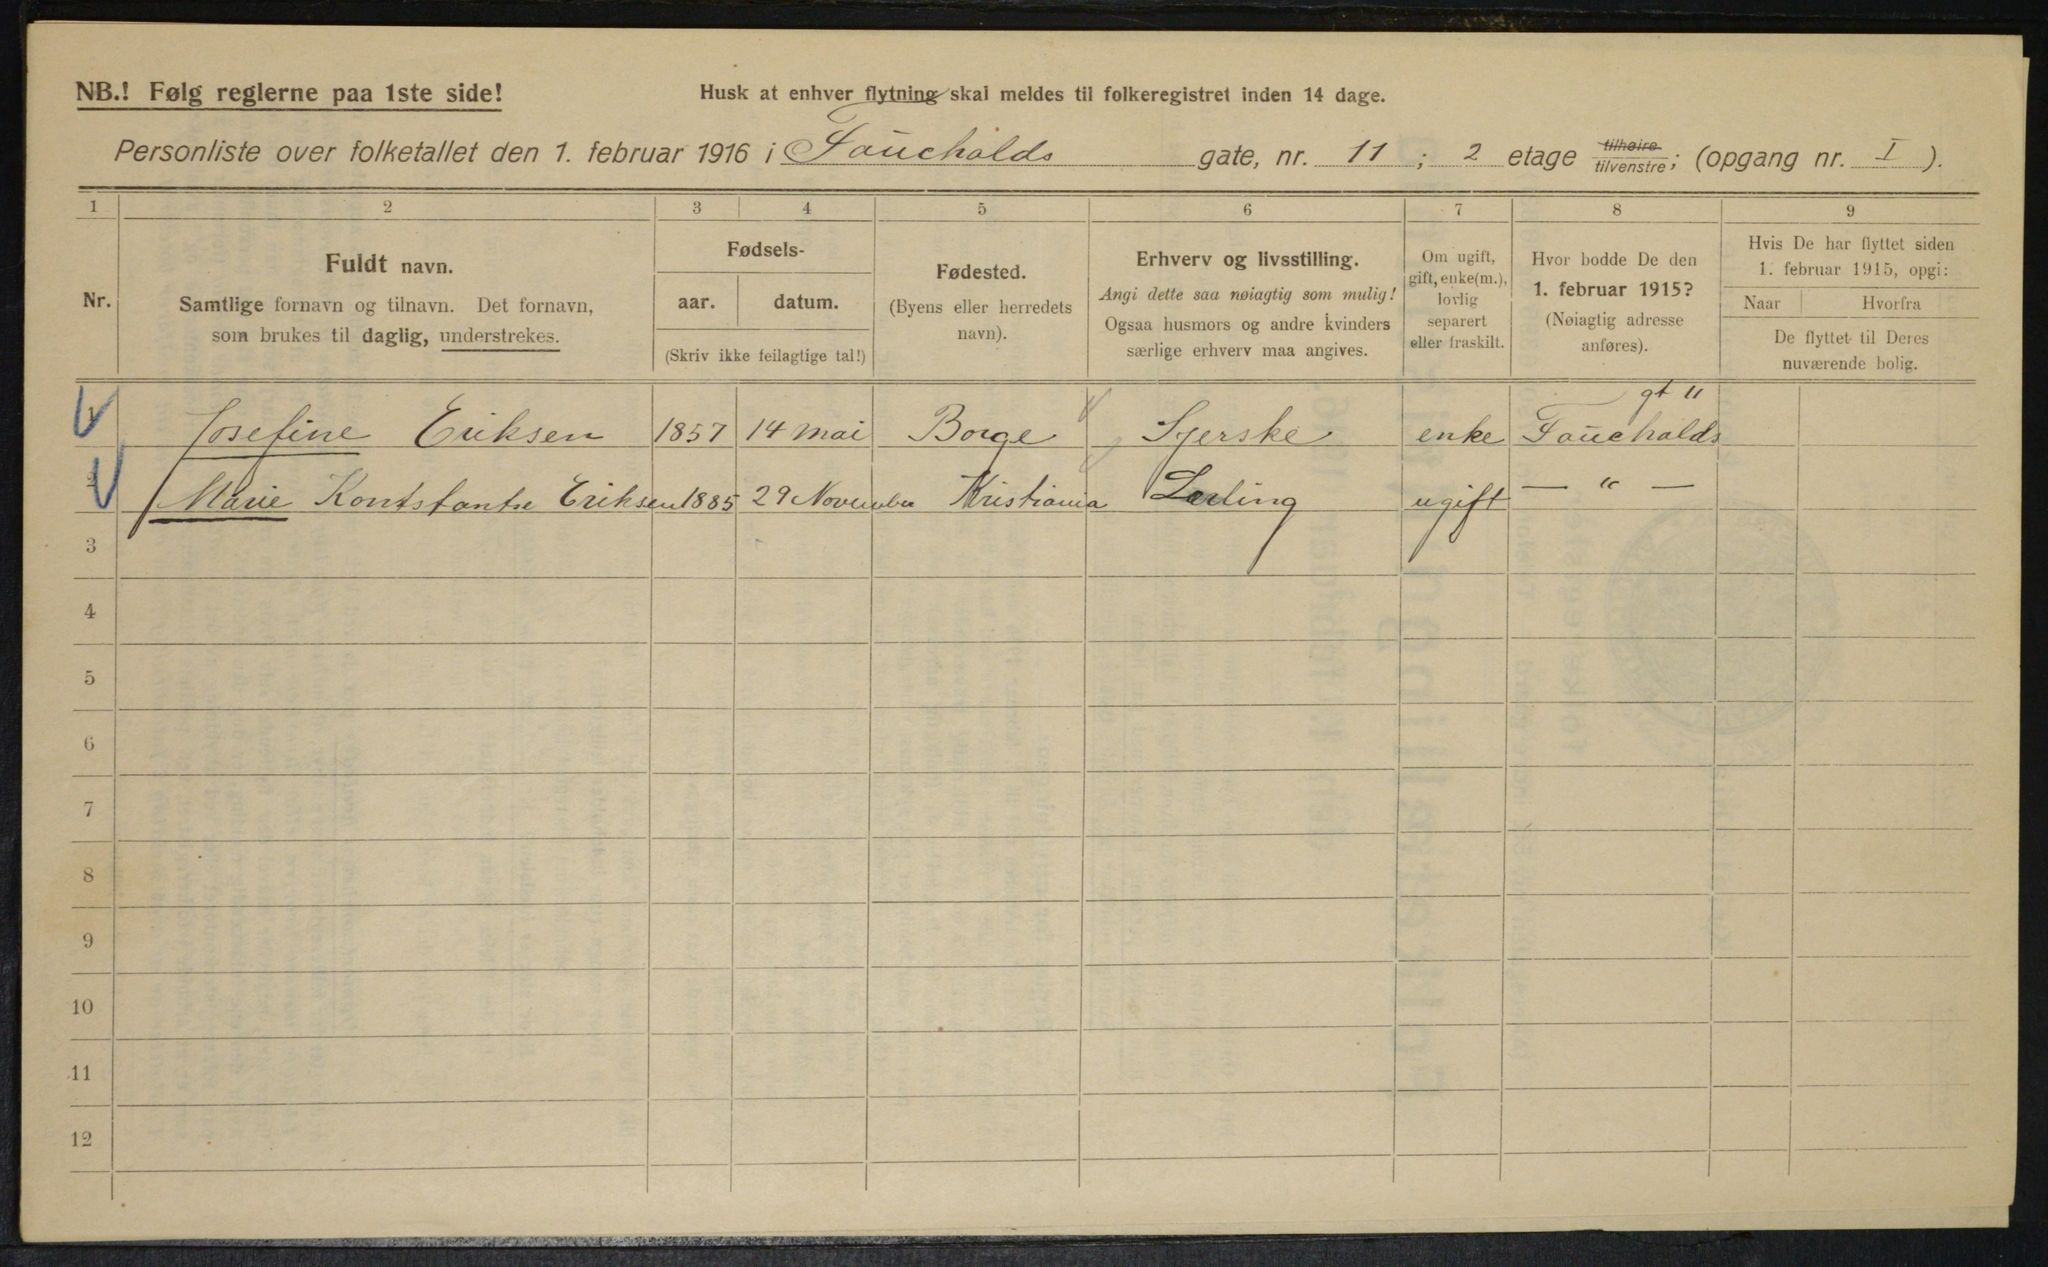 NB.! Følg reglerne paa 1ste side!
Husk at enhver flytning skal meldes til folkeregistret inden 14 dage.
Personliste over folketallet den 1. februar 1916 i Faucholds gate, nr. 11; 2 etage tilhøire tilvenstre; (opgang nr. I).
1 2 3 4 5 6 7 8 9
Nr.
Fuldt navn.
Samtlige fornavn og tilnavn. Det fornavn,
som brukes til daglig, understrekes.
Fødsels-
aar. datum.
(Skriv ikke feilagtige tal!)
Fødested.
(Byens eller herredets
navn).
Erhverv og livsstilling.
Angi dette saa nøiagtig som mulig!
Ogsaa husmors og andre kvinders
særlige erhverv maa angives.
Om ugift,
gift, enke(m.),
lovlig
separert
eller fraskilt.
Hvor bodde De den
1. februar 1915?
(Nøiagtig adresse
anføres).
Hvis De har flyttet siden
1. februar 1915, opgi:
Naar Hvorfra
De flyttet til Deres
nuværende bolig.
1 Josefine Eriksen 1857 14 mai Borge Syerske enke Faucholds gt 11
2 Marie Kontstantse Eriksen 1885 29 November Kristiania Lærling ugift — " —
3
4
5
6
7
8
9
10
11
12